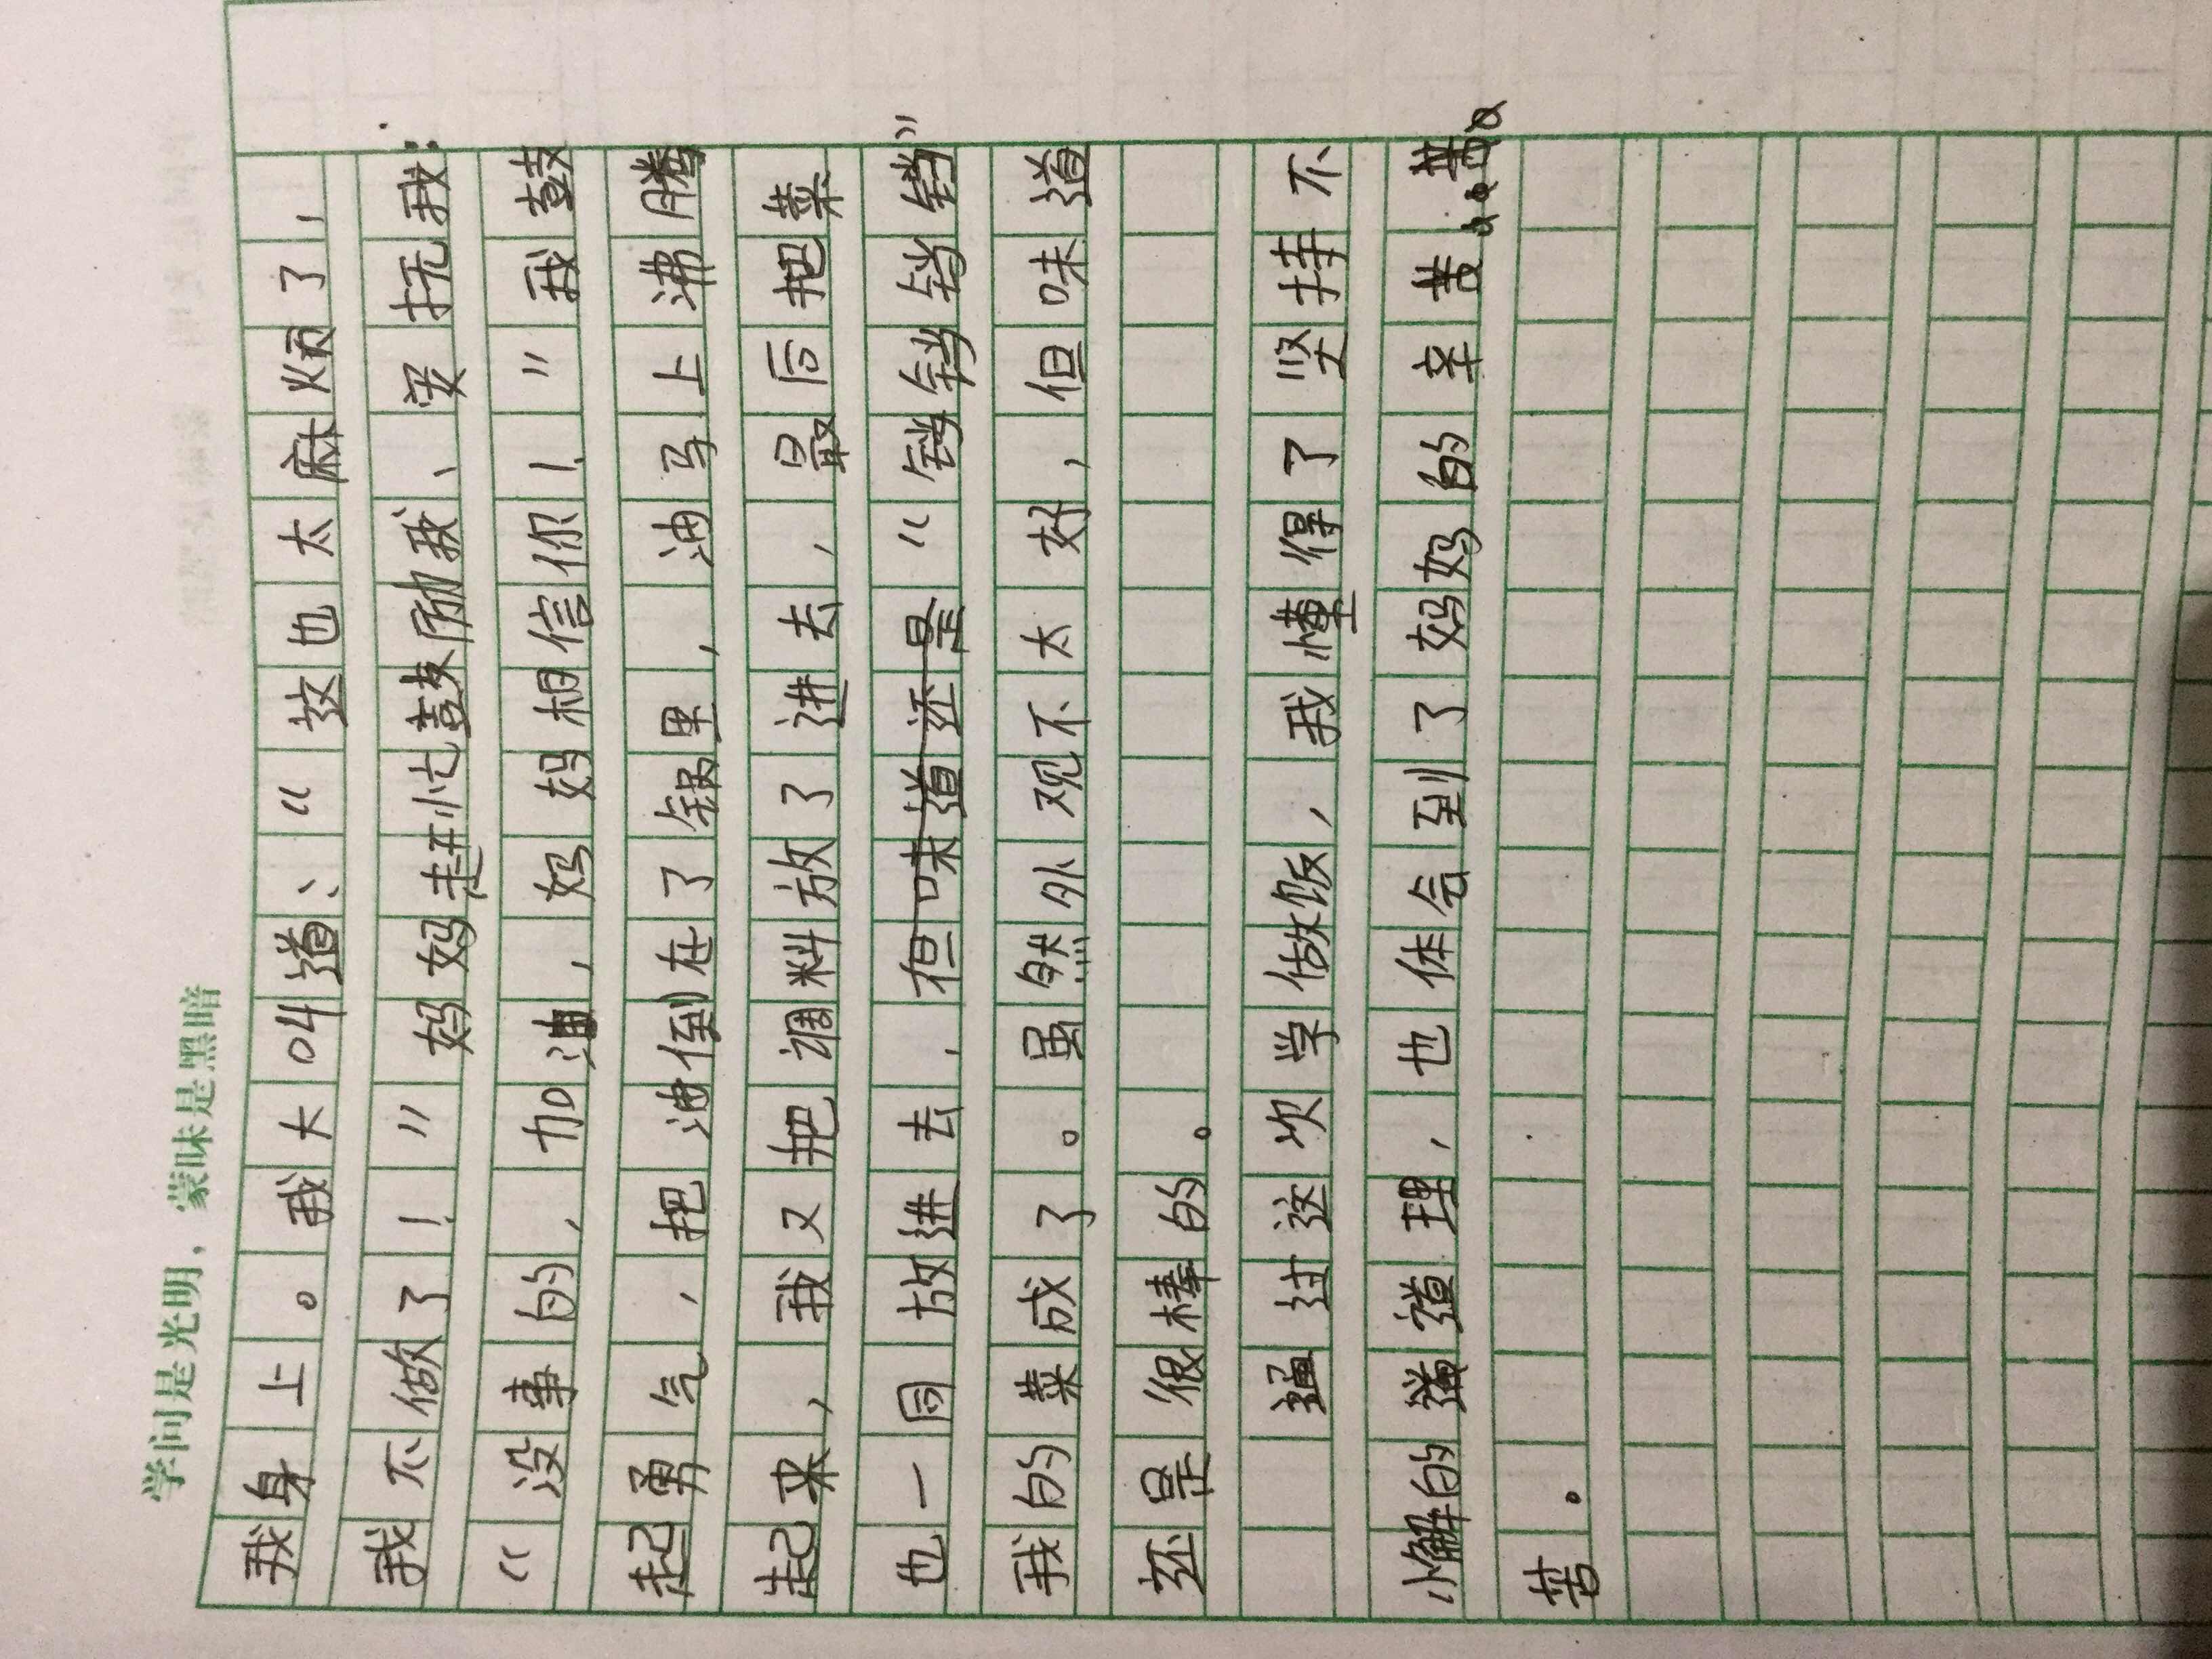 学问是光明，蒙昧是黑暗
我身上。我大叫道：“这也太麻烦了，
我不做了！”妈妈赶忙鼓励我、安抚我：
“没事的，加油，妈妈相信你！”我鼓
起勇气，把油倒在了锅里，油马上沸腾
起来，我又把调料放了进去，最后把菜
也一同放进去，但味道还是“铛铛铛铛”
我的菜成了。虽然外观不太好，但味道
还是很棒的。
通过这次学做饭，我懂得了坚持不
懈的道理，也体会到了妈妈的辛苦
苦。